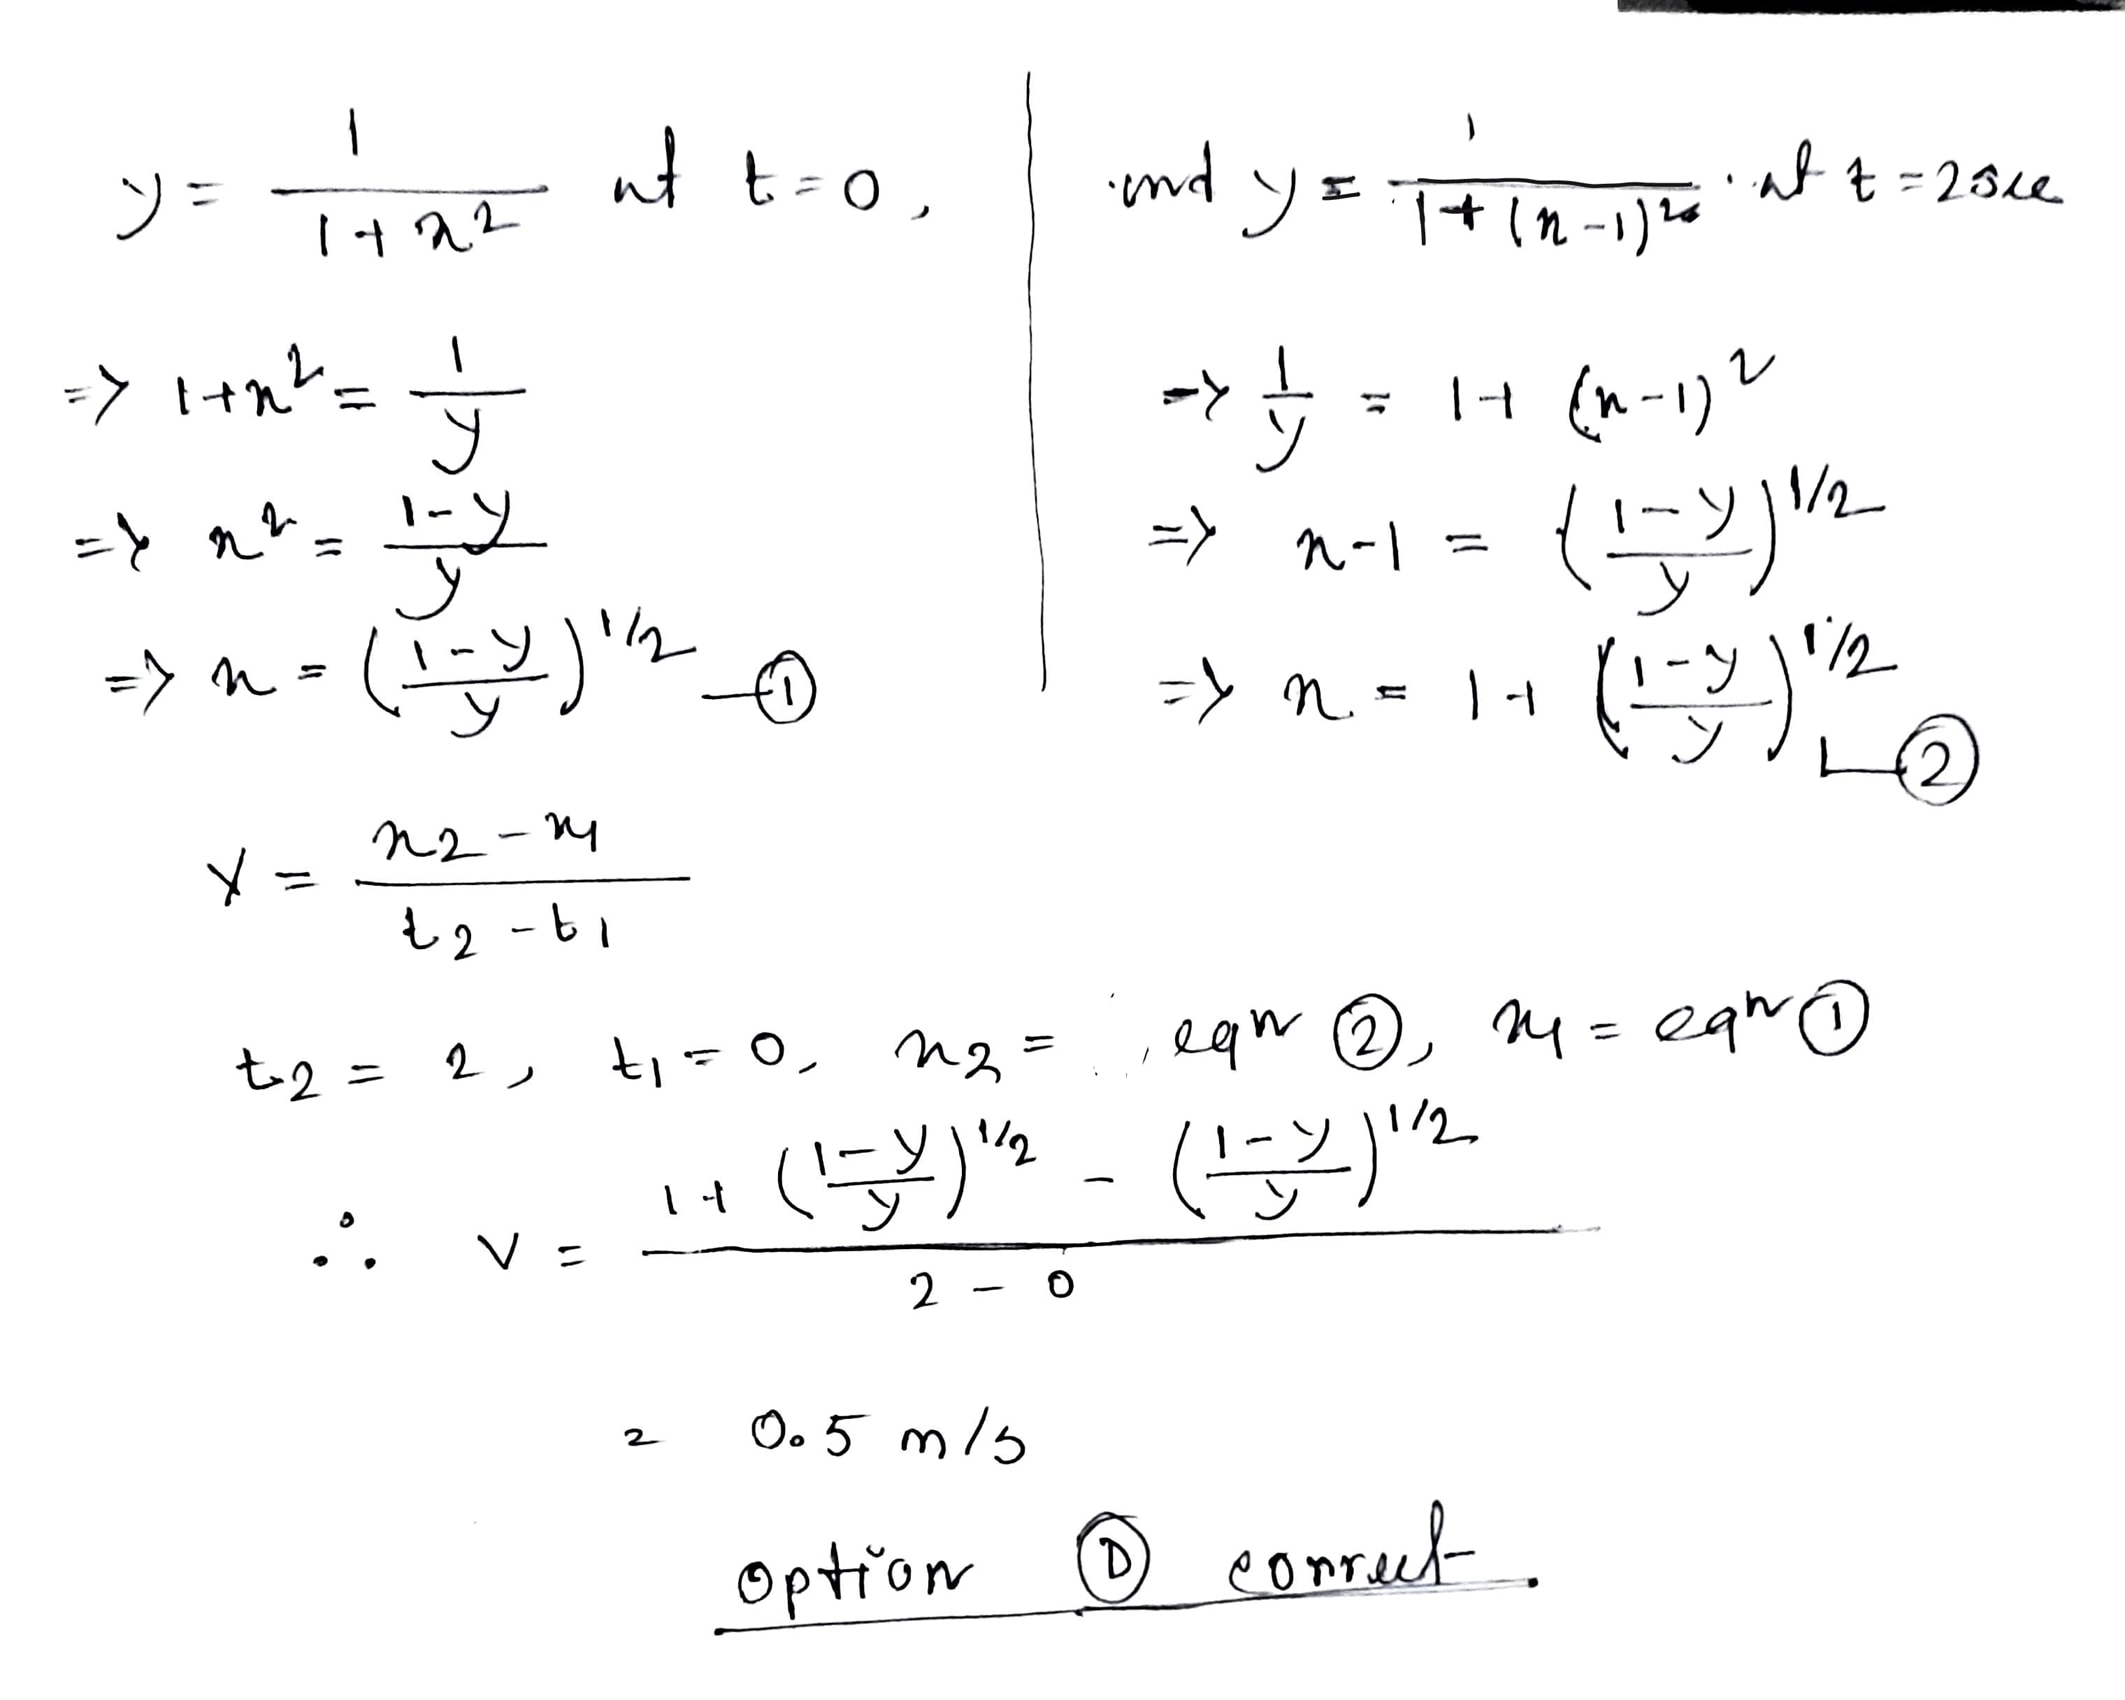 y = 1/(1+x²) at t=0,
=> 1+x² = 1/y
=> x² = (1-y)/y
=> x = ((1-y)/y)^1/2 —①
and y = 1/(1+(x-1)²) at t=2sec
=> 1/y = 1+(x-1)²
=> x-1 = ((1-y)/y)^1/2
=> x = 1+((1-y)/y)^1/2 —②
v = (x2-x1)/(t2-t1)
t2 = 2, t1=0, x2 = eqn ②, x1 = eqn ①
∴ v = (1+((1-y)/y)^1/2 - ((1-y)/y)^1/2)/(2-0)
= 0.5 m/s
option Ⓓ correct